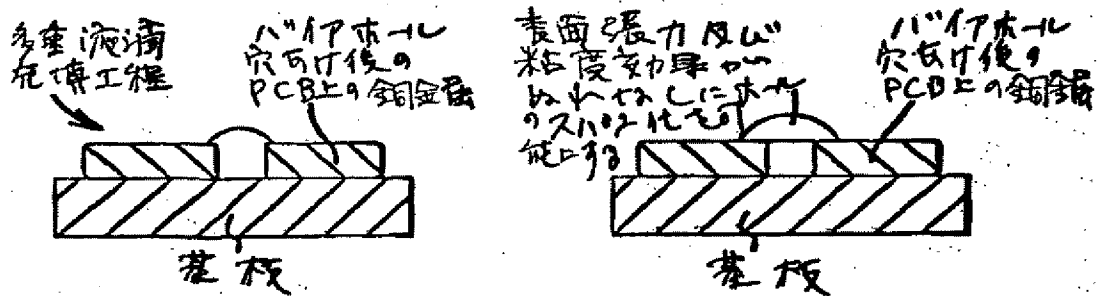 多重液滴
充塡工程
バイアホール
穴あけ後の
PCB上の銅金属
基板
表面張力及び
粘度効果が
ぬれなしにホール
のスパン化を可
能にする
バイアホール
穴あけ後の
PCB上の銅金属
基板